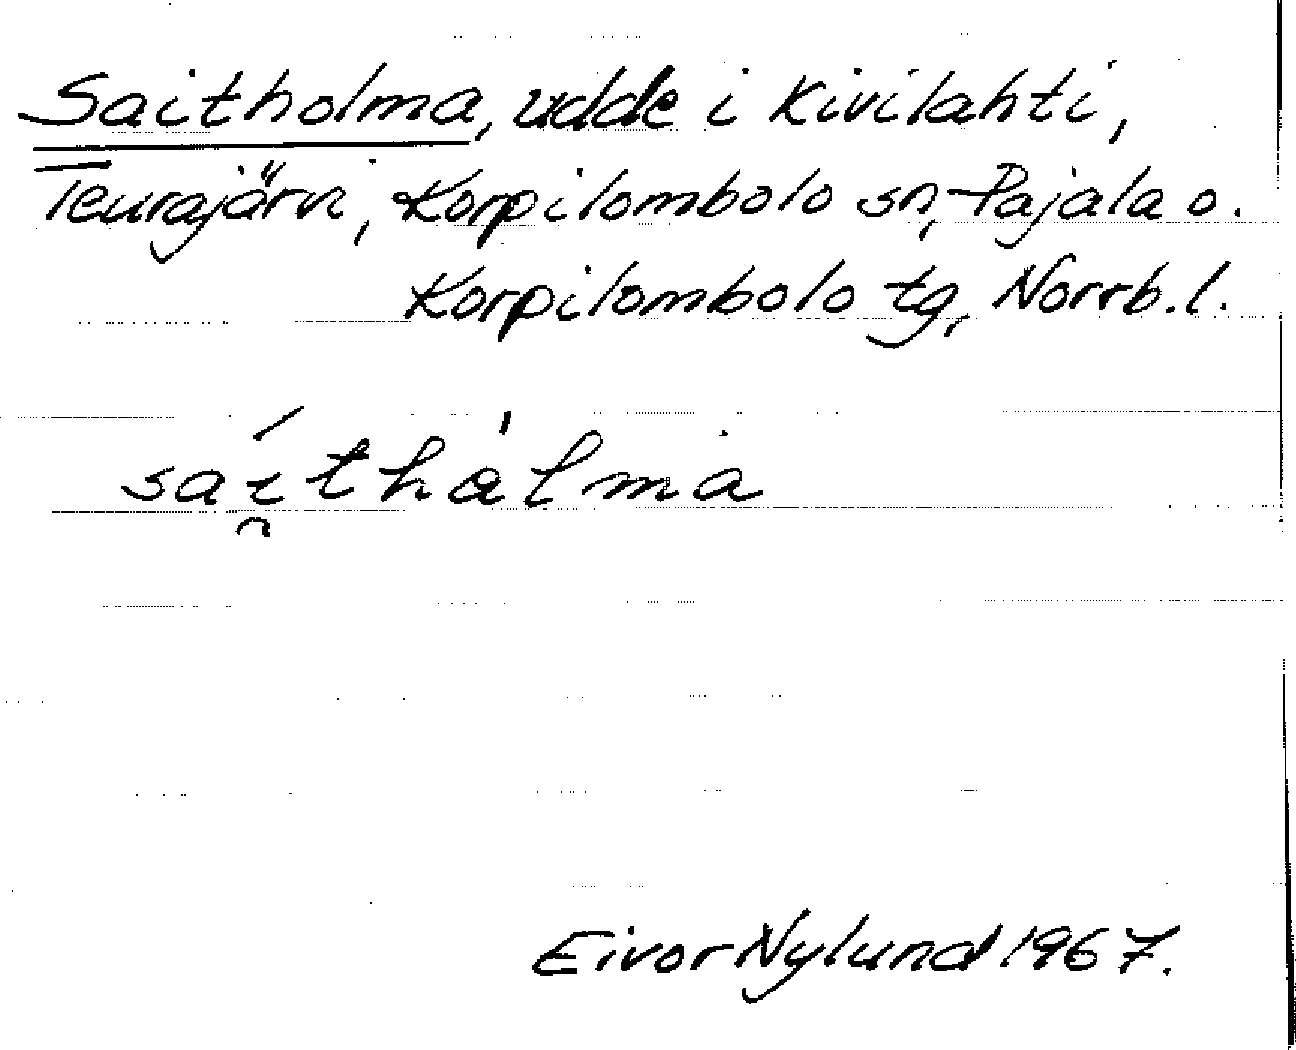 Saitholma, udde i Kivilahti,
Teurajärvi, Korpilombolo sn, Pajala o.
Korpilombolo tg, Norrb.l.
saíthålma
Eivor Nylund 1967.